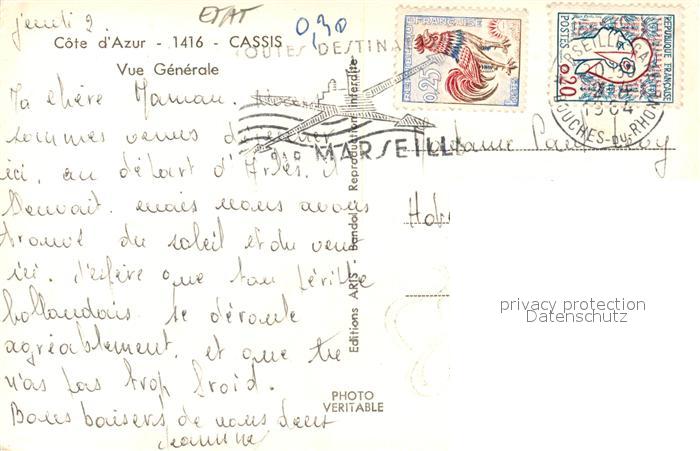 jeudi 2
ETAT
0,30
Côte d'Azur - 1416 - CASSIS
Vue Générale
TOUTES DESTINA
PAR MARSEILL
REPUBLIQUE FRANÇAISE
0,25
POSTES 0,20
REPUBLIQUE FRANÇAISE
MARSEILLE GARE
1964
BOUCHES-DU-RHONE
Ma chère Maman. Nous
sommes venus
ici, au départ d'Arles, il
pleuvait, mais nous avons
trouvé du soleil et du vent
ici. J'espère que ton périple
hollandais se déroule
agréablement, et que tu
n'as pas trop froid.
Bons baisers de nous deux
Jeannine
Editions ARIS - Bandol - Reproduction interdite
PHOTO
VERITABLE
Madame
Hot
privacy protection
Datenschutz